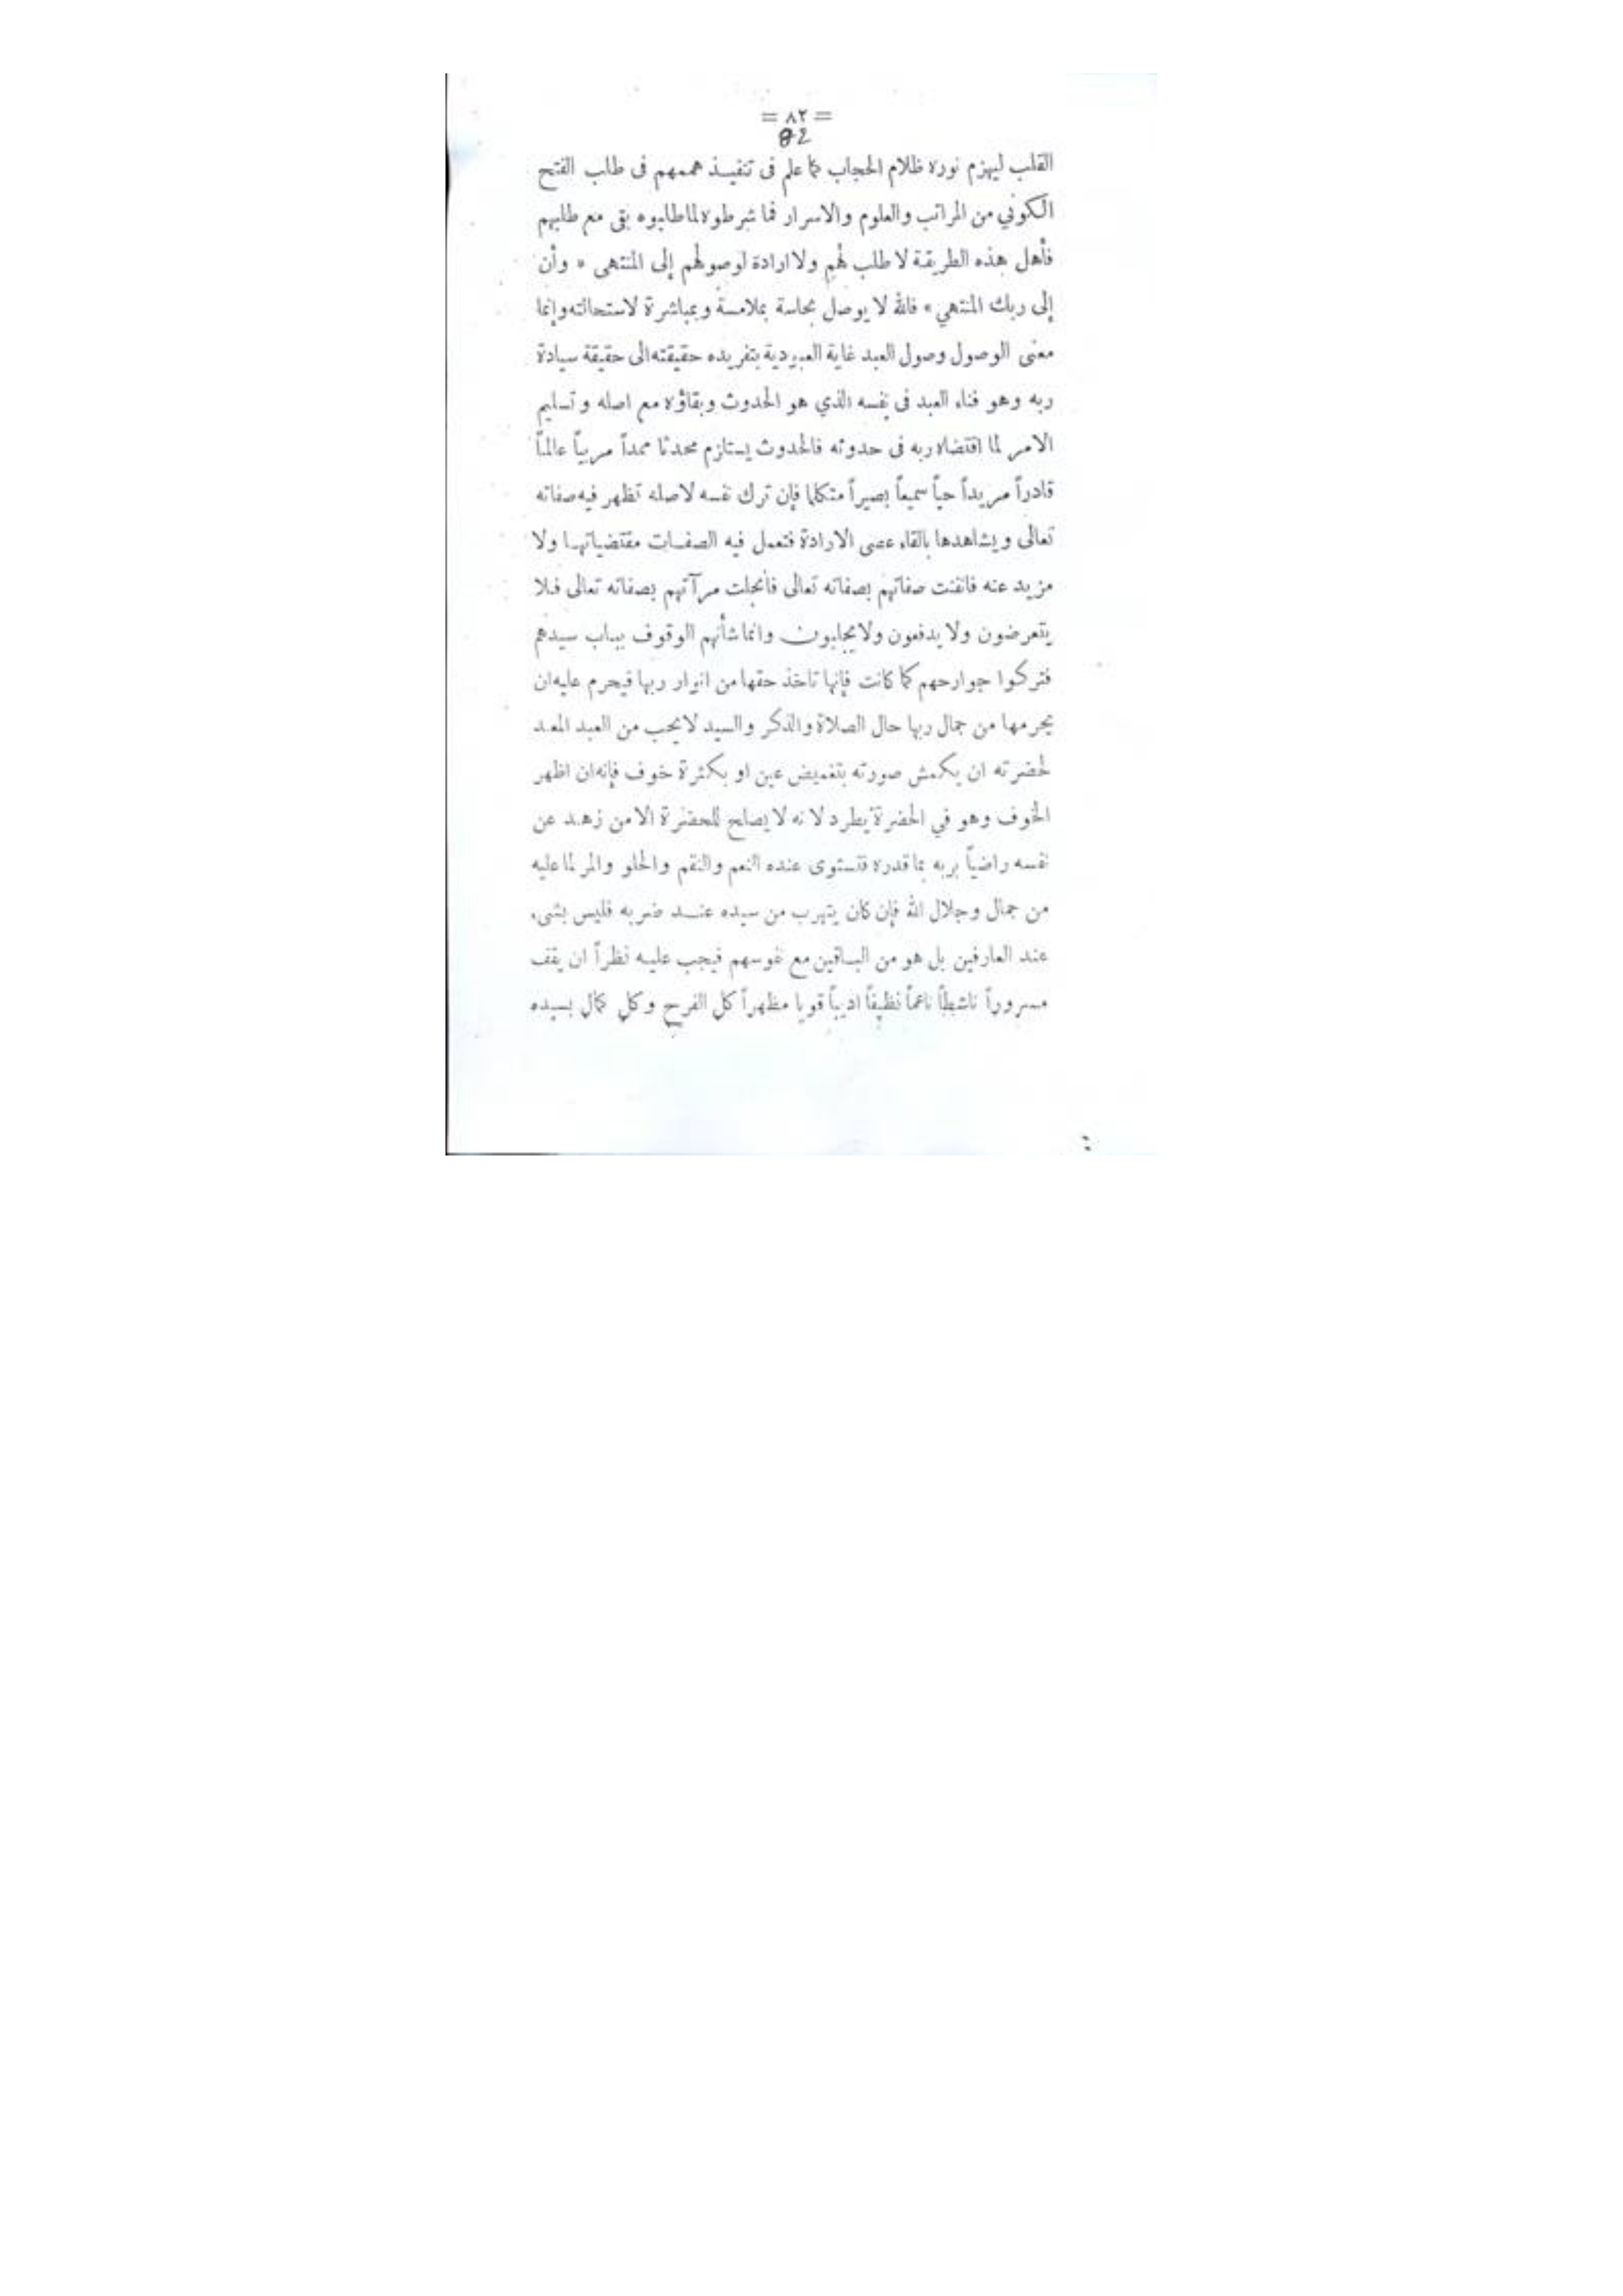 = ٨٢ =
82
القلب ليهزم نوره ظلام الحجاب كما علم فى تنفيذ هممهم فى طلب الفتح
الكوني من المراتب والعلوم والاسرار فما شرطوه لما طلبوه بقى مع طلبهم
فأهل هذه الطريقة لا طلب لهم ولا ارادة لوصولهم إلى المنتهى « وأن
إلى ربك المنتهي » فالله لا يوصل بحاسة بملامسة وبمباشرة لاستحالته وإنما
معنى الوصول وصول العبد غاية العبودية بتفريده حقيقته الى حقيقة سيادة
ربه وهو فناء العبد فى نفسه الذي هو الحدوث وبقاؤه مع اصله وتسليم
الامر لما اقتضاه ربه فى حدوثه فالحدوث يستلزم محدثا ممداً مربياً عالماً
قادراً مريداً حياً سميعاً بصيراً متكلما فإن ترك نفسه لاصله تظهر فيه صفاته
تعالى ويشاهدها بالقاء عصى الارادة فتعمل فيه الصفات مقتضياتها ولا
مزيد عنه فانفنت صفاتهم بصفاته تعالى فانجلت مرآتهم بصفاته تعالى فلا
يتعرضون ولا يدفعون ولا يجلبون وانما شأنهم الوقوف بباب سيدهم
فتركوا جوارحهم كما كانت فإنها تاخذ حقها من انوار ربها فيحرم عليه ان
يحرمها من جمال ربها حال الصلاة والذكر والسيد لا يحب من العبد المعد
لحضرته ان يكمش صورته بتغميض عين او بكثرة خوف فإنه ان اظهر
الخوف وهو في الحضرة يطرد لانه لا يصلح للحضرة الا من زهد عن
نفسه راضياً بربه بما قدره فتستوى عنده النعم والنقم والحلو والمر لما عليه
من جمال وجلال الله فإن كان يتهرب من سيده عند ضربه فليس بشىء
عند العارفين بل هو من الباقين مع نفوسهم فيجب عليه نظراً ان يقف
مسروراً ناشطاً ناعماً نظيفاً اديباً قويا مظهراً كل الفرح وكل كمال بسيده